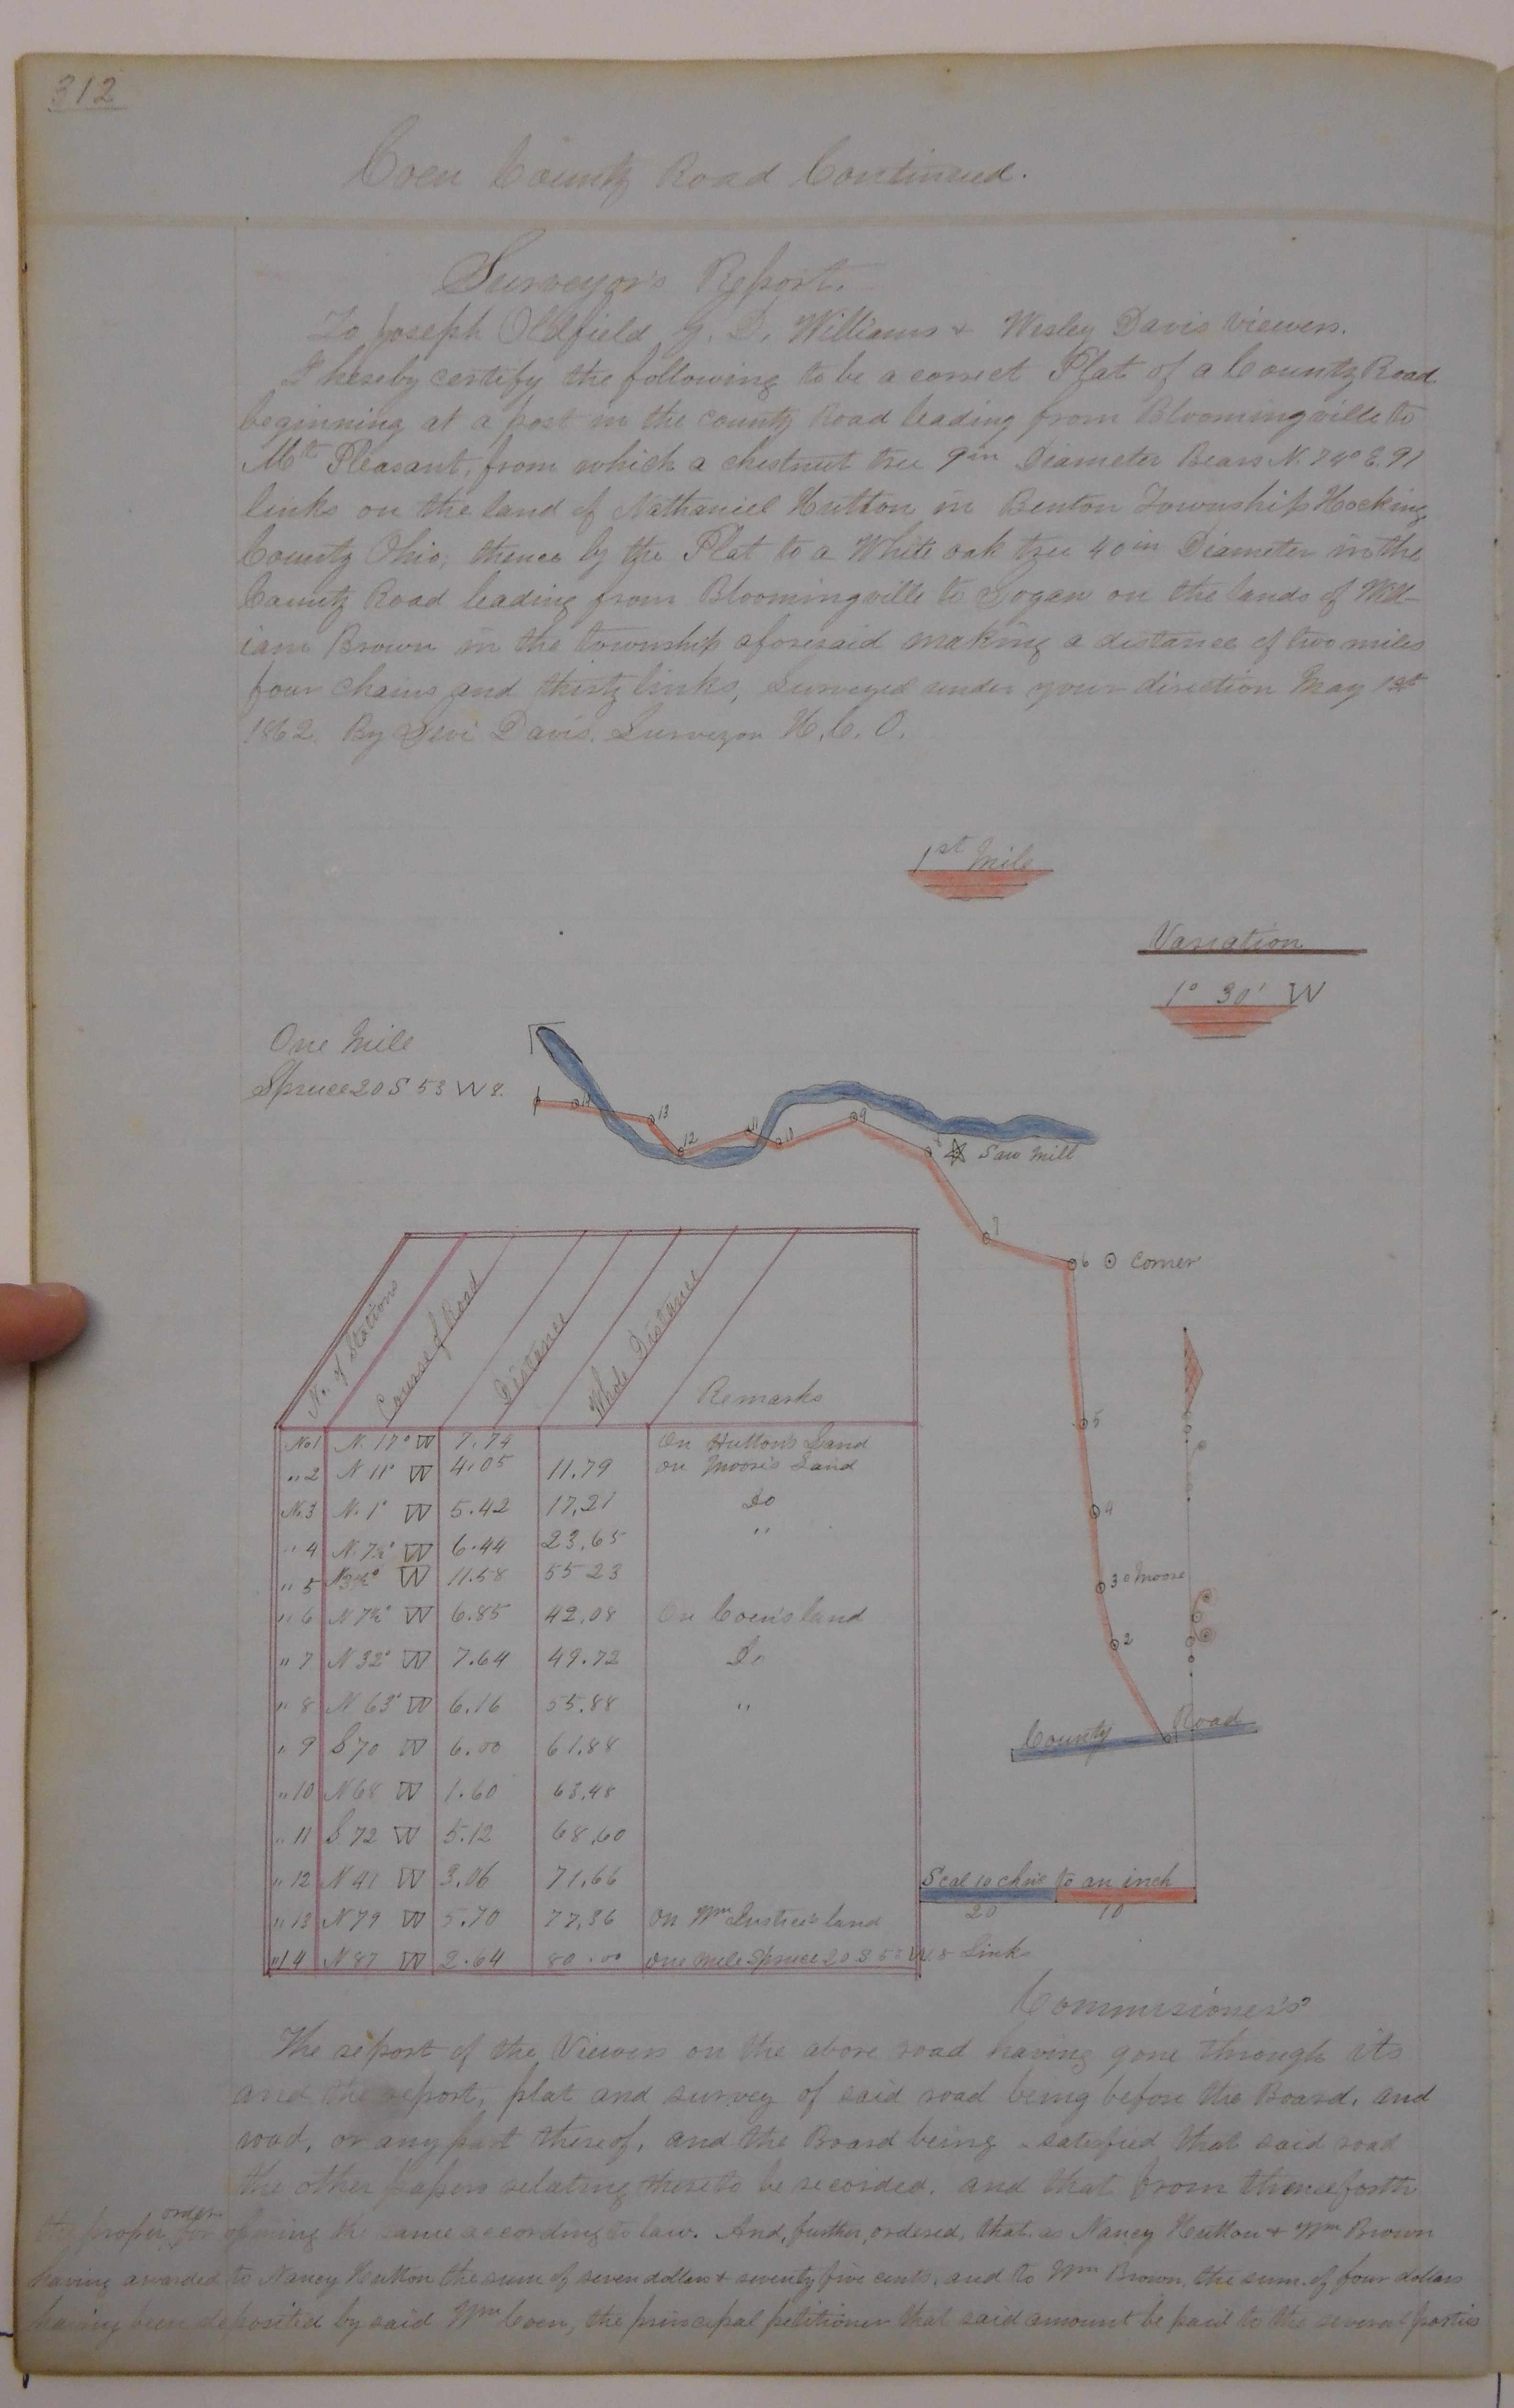 312
Coen County Road Continued.
Surveyor's Report.
To Joseph Oldfield, G. D. Williams & Wesley Davis viewers.
I hereby certify the following to be a correct Plat of a County Road
beginning at a post in the county Road leading from Bloomingville to
Mt Pleasant, from which a chestnut tree 9 in Diameter Bears N. 74° E. 91
links on the land of Nathaniel Hutton in Benton Township Hocking
County Ohio, thence by the Plat to a White oak tree 40 in Diameter in the
County Road leading from Bloomingville to Logan on the lands of Will-
iam Brown in the township aforesaid making a distance of two miles
four chains and thirty links, Surveyed under your direction May 1st
1862. By Levi Davis. Surveyor H. C. O.
1st Mile
Variation
1° 30' W
One Mile
Spruce 20 S 53 W 8.
14
13
12
11
10
9
8
Saw Mill
7
6 Corner
5
4
3 Moore
2
County Road
No. of Stations Course of Road Distance Whole Distance Remarks
No 1 N. 17° W 7.74 On Hutton's Land
" 2 N 11° W 4.05 11.79 on Moore's Land
No. 3 N. 1° W 5.42 17.21 Do
" 4 N. 7½° W 6.44 23.65 "
" 5 N 3½° W 11.58 55 23
" 6 N 7½° W 6.85 42.08 On Coen's land
" 7 N 32° W 7.64 49.72 Do
" 8 N 63° W 6.16 55.88 "
" 9 S 70 W 6.00 61.88
" 10 N 68 W 1.60 63.48
" 11 S 72 W 5.12 68.60
" 12 N 41 W 3.06 71.66
" 13 N 79 W 5.70 77.36 On Wm Justice's land
" 14 N 87 W 2.64 80.00 One Mile Spruce 20 S 53 W. 8 Link
Scal 10 chns to an inch
20 10
Commisioner's
The report of the Viewers on the above road having gone through its
and the report, plat and survey of said road being before the Board, and
road, or any part thereof, and the Board being satisfied that said road
the other papers relating thereto be recorded, and that from thenceforth
the proper order for opening the same according to law. And, further, ordered, that as Nancy Hutton & Wm Brown
having awarded to Nancy Hutton the sum of seven dollars & seventy five cents, and to Wm Brown, the sum of four dollars
having been deposited by said Wm Coen, the principal petitioner that said amount be paid to the several parties